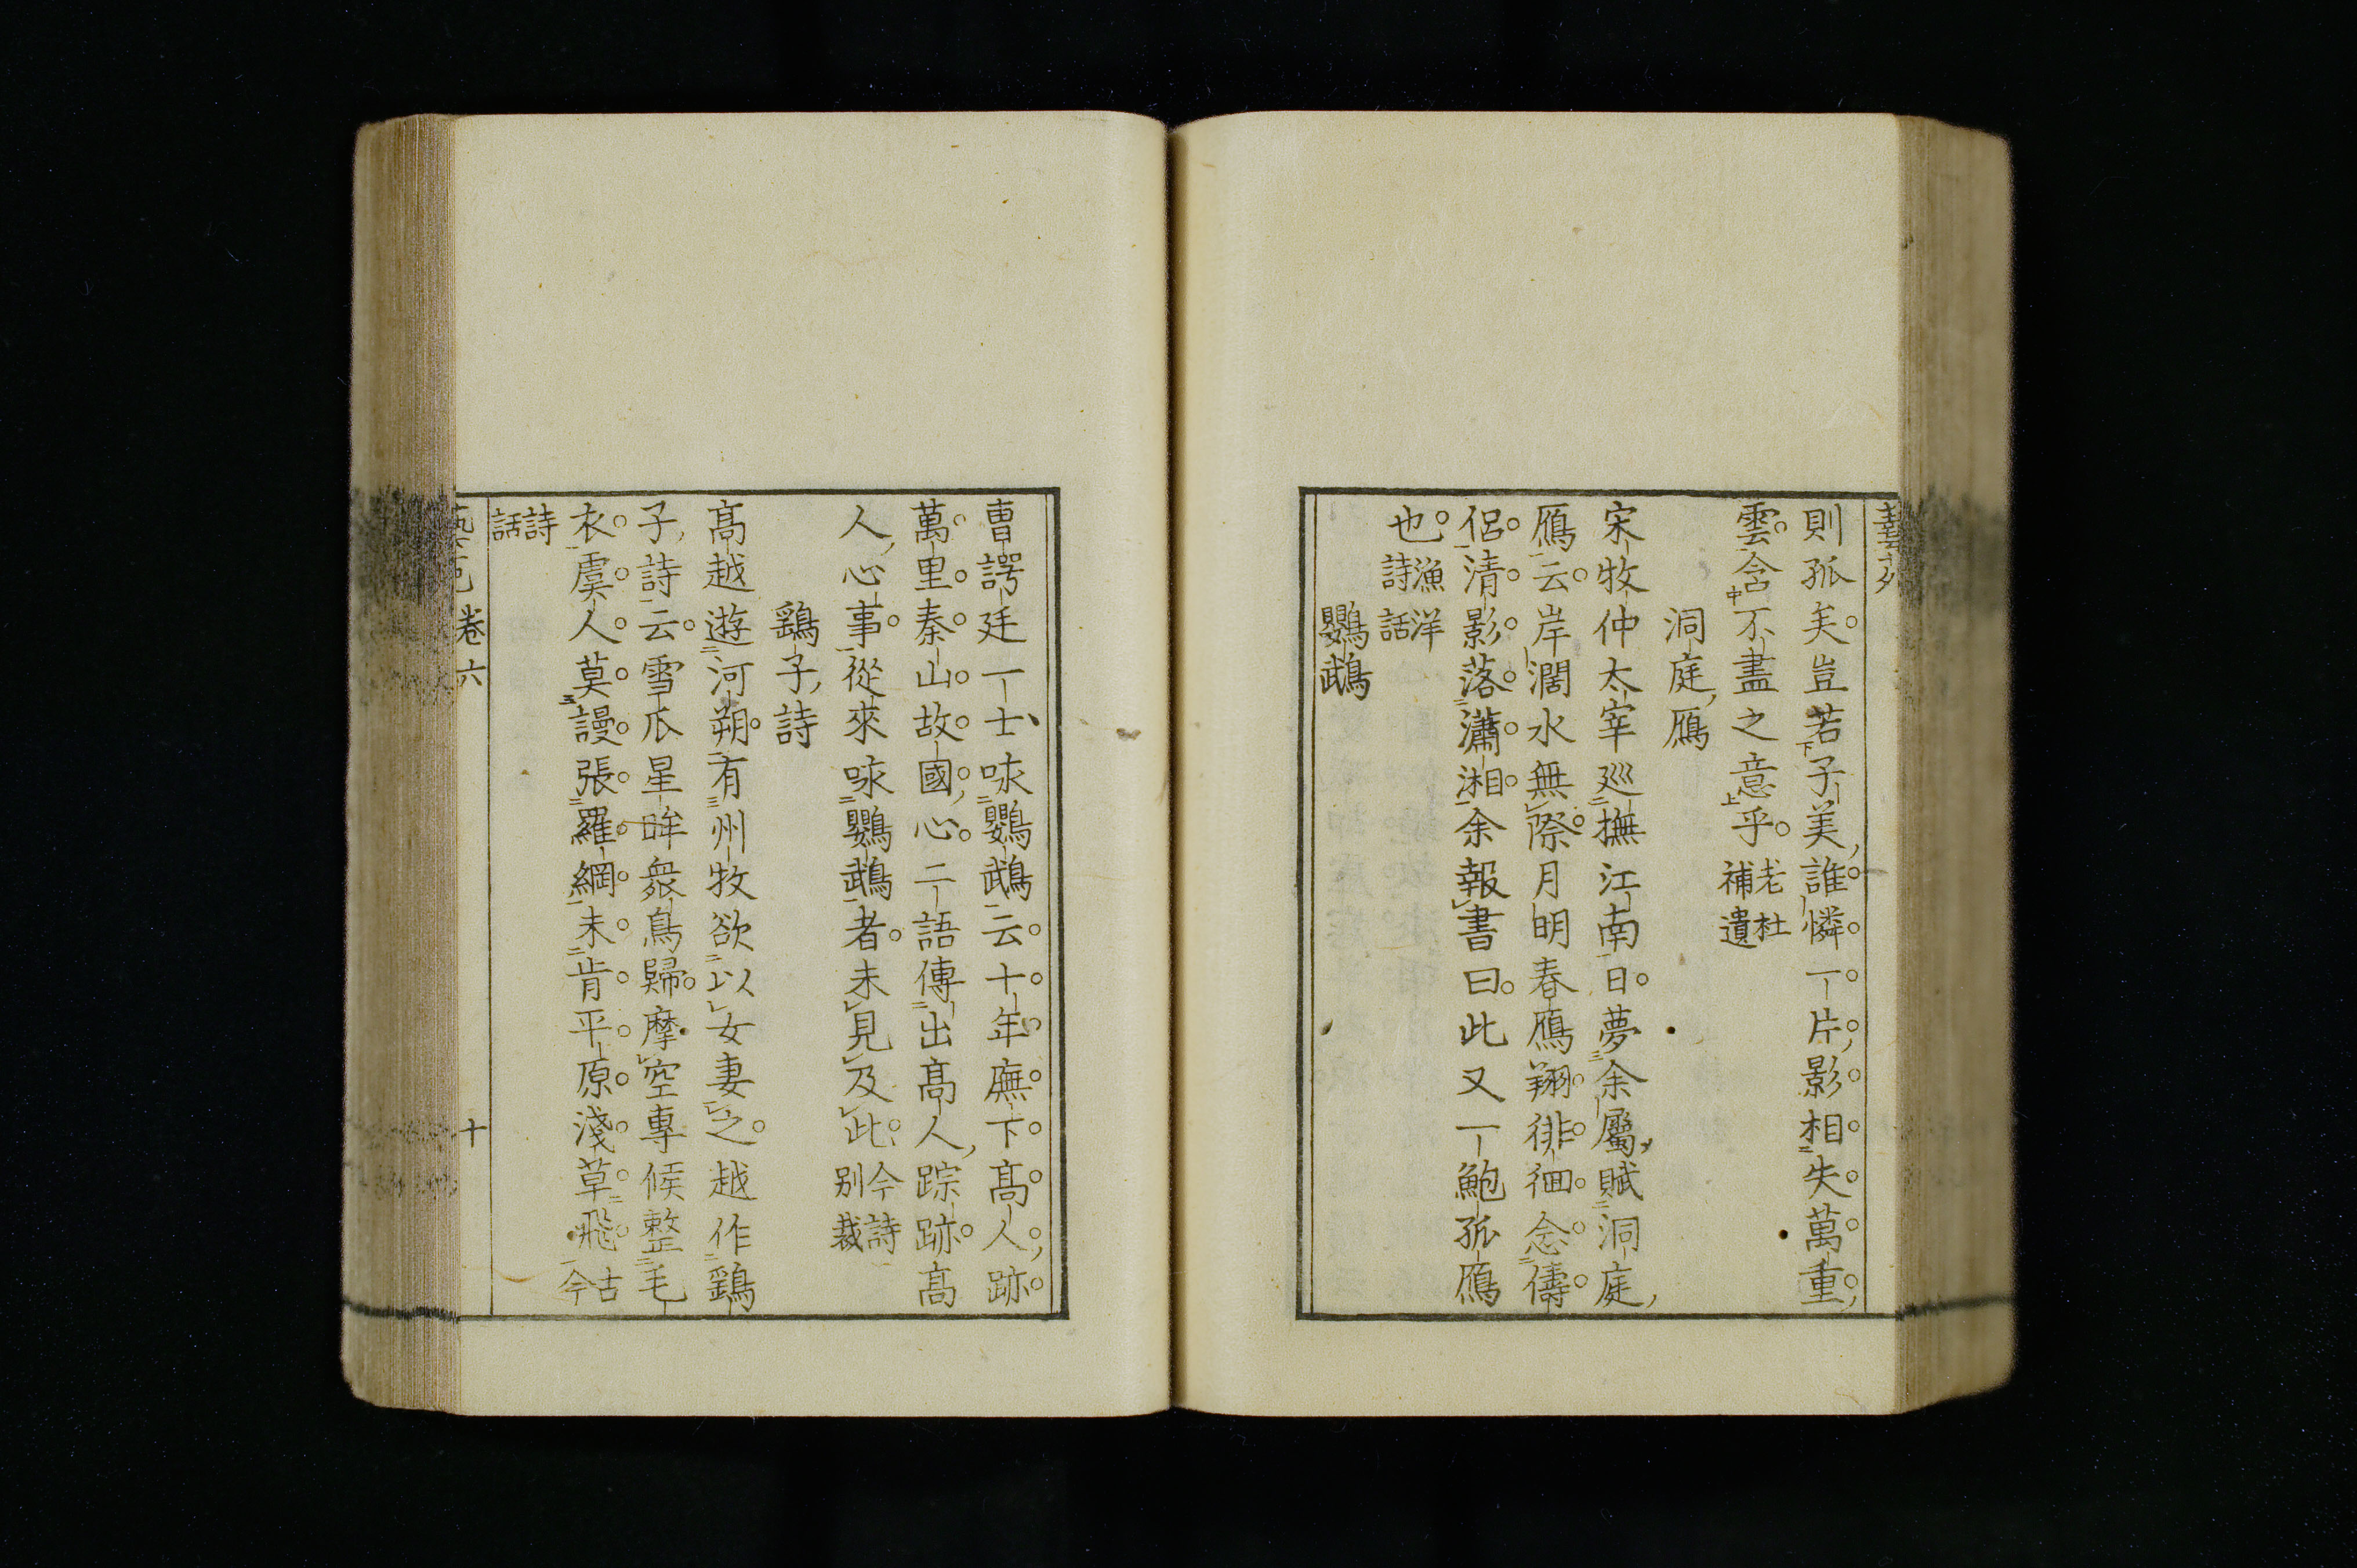 則孤矣豈若子美誰憐一片影相失萬重
雲含不盡之意乎老杜補遺
洞庭鴈
宋牧仲太宰巡撫江南日夢余屬賦洞庭
鴈云岸濶水無際月明春鴈翔徘徊念儔
侶清影落瀟湘余報書曰此又一鮑孤鴈
也漁洋詩話
鸚鵡
曹諤廷一士咏鸚鵡云十年廡下高人跡
萬里秦山故國心二語傳出高人踪跡高
人心事從來咏鸚鵡者未見及此今詩別裁
鷂子詩
高越遊河朔有州牧欲以女妻之越作鷂
子詩云雪爪星眸衆鳥歸摩空專候整毛
衣虞人莫謾張羅網未肯平原淺草飛古今
詩話
卷六
十